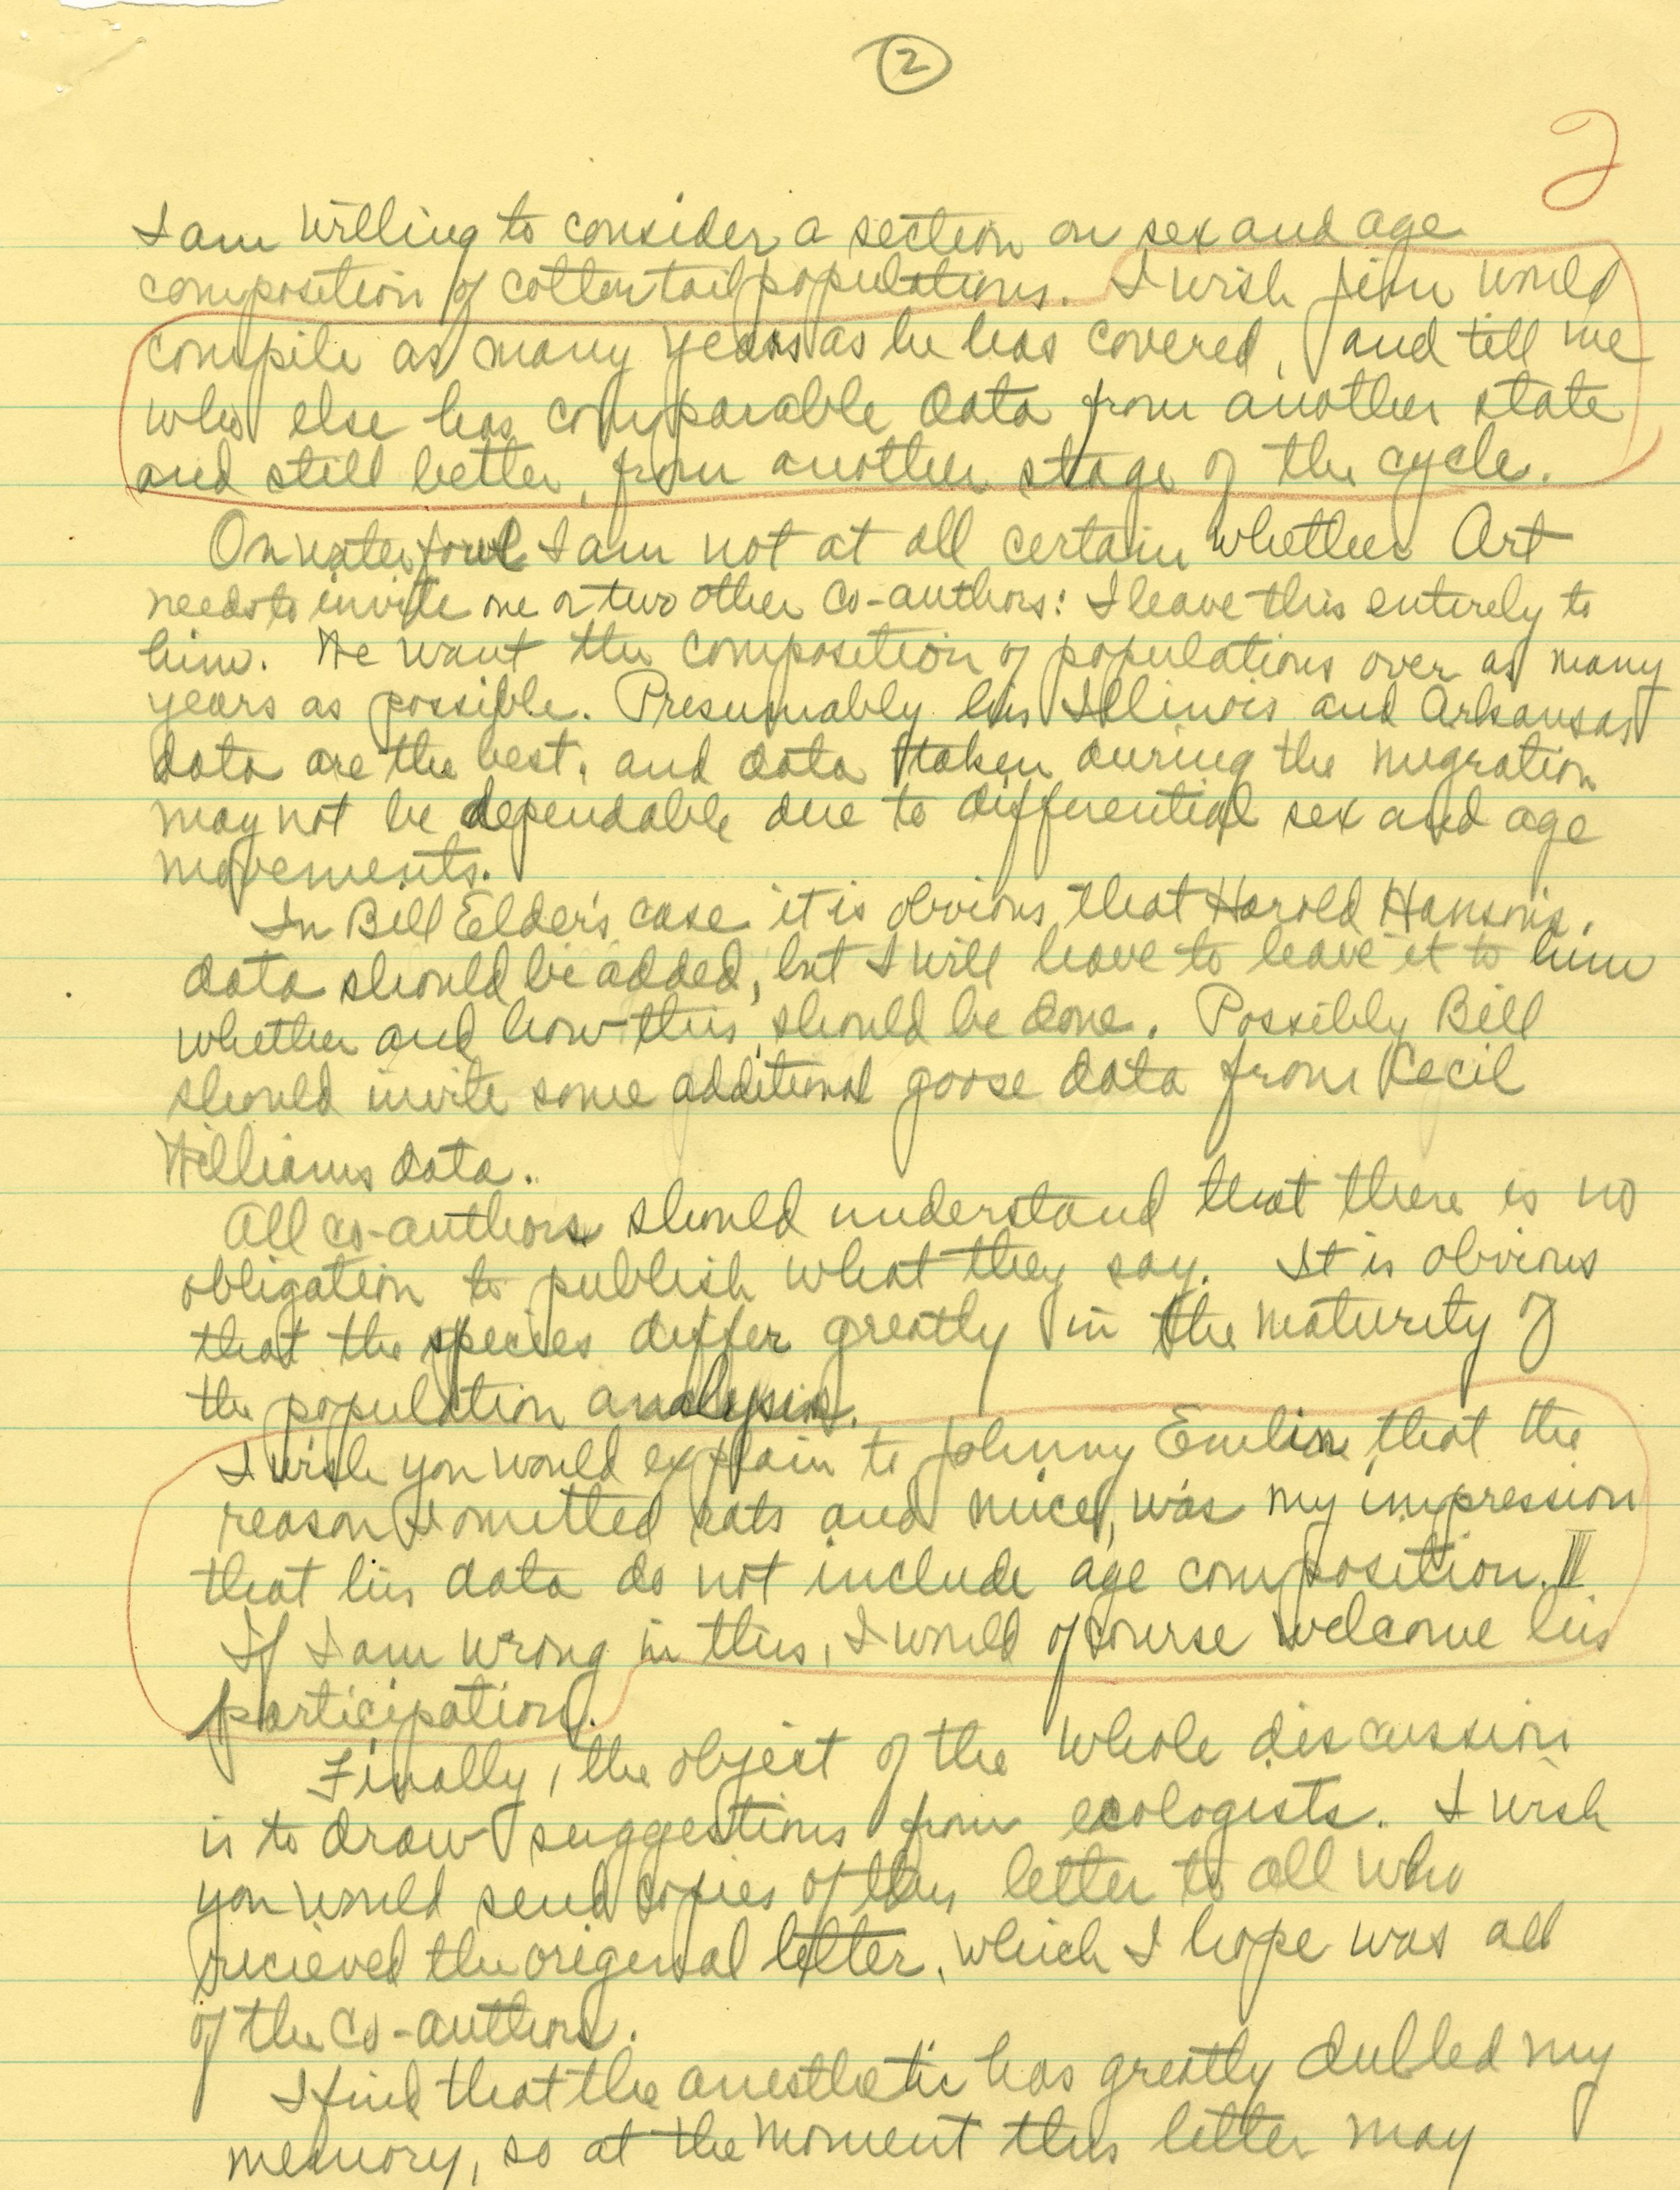 2
2
I am willing to consider a section on sex and age
composition of cottontail populations. I wish Jim would
compile as many years as he has covered, and tell me
who else has comparable data from another state
and still better, from another stage of the cycle.
On waterfowl I am not at all certain whether Art
needs to invite one or two other co-authors: I leave this entirely to
him. We want the composition of populations over as many
years as possible. Presumably his Illinois and Arkansas
data are the best, and data taken during the migration
may not be dependable due to differential sex and age
movements.
In Bill Elder's case it is obvious that Harold Hanson's
data should be added, but I will have to leave it to him
whether and how this should be done. Possibly Bill
should invite some additional goose data from Cecil
Williams data.
All co-authors should understand that there is no
obligation to publish what they say. It is obvious
that the species differ greatly in the maturity of
the population analysis.
I wish you would explain to Johnny Emlen that the
reason I omitted rats and mice, was my impression
that his data do not include age composition.
If I am wrong in this, I would of course welcome his
participation.
Finally, the object of the whole discussion
is to draw suggestions from ecologists. I wish
you would send copies of this letter to all who
recieved the original letter, which I hope was all
of the co-authors.
I find that the anesthetic has greatly dulled my
memory, so at the moment this letter may